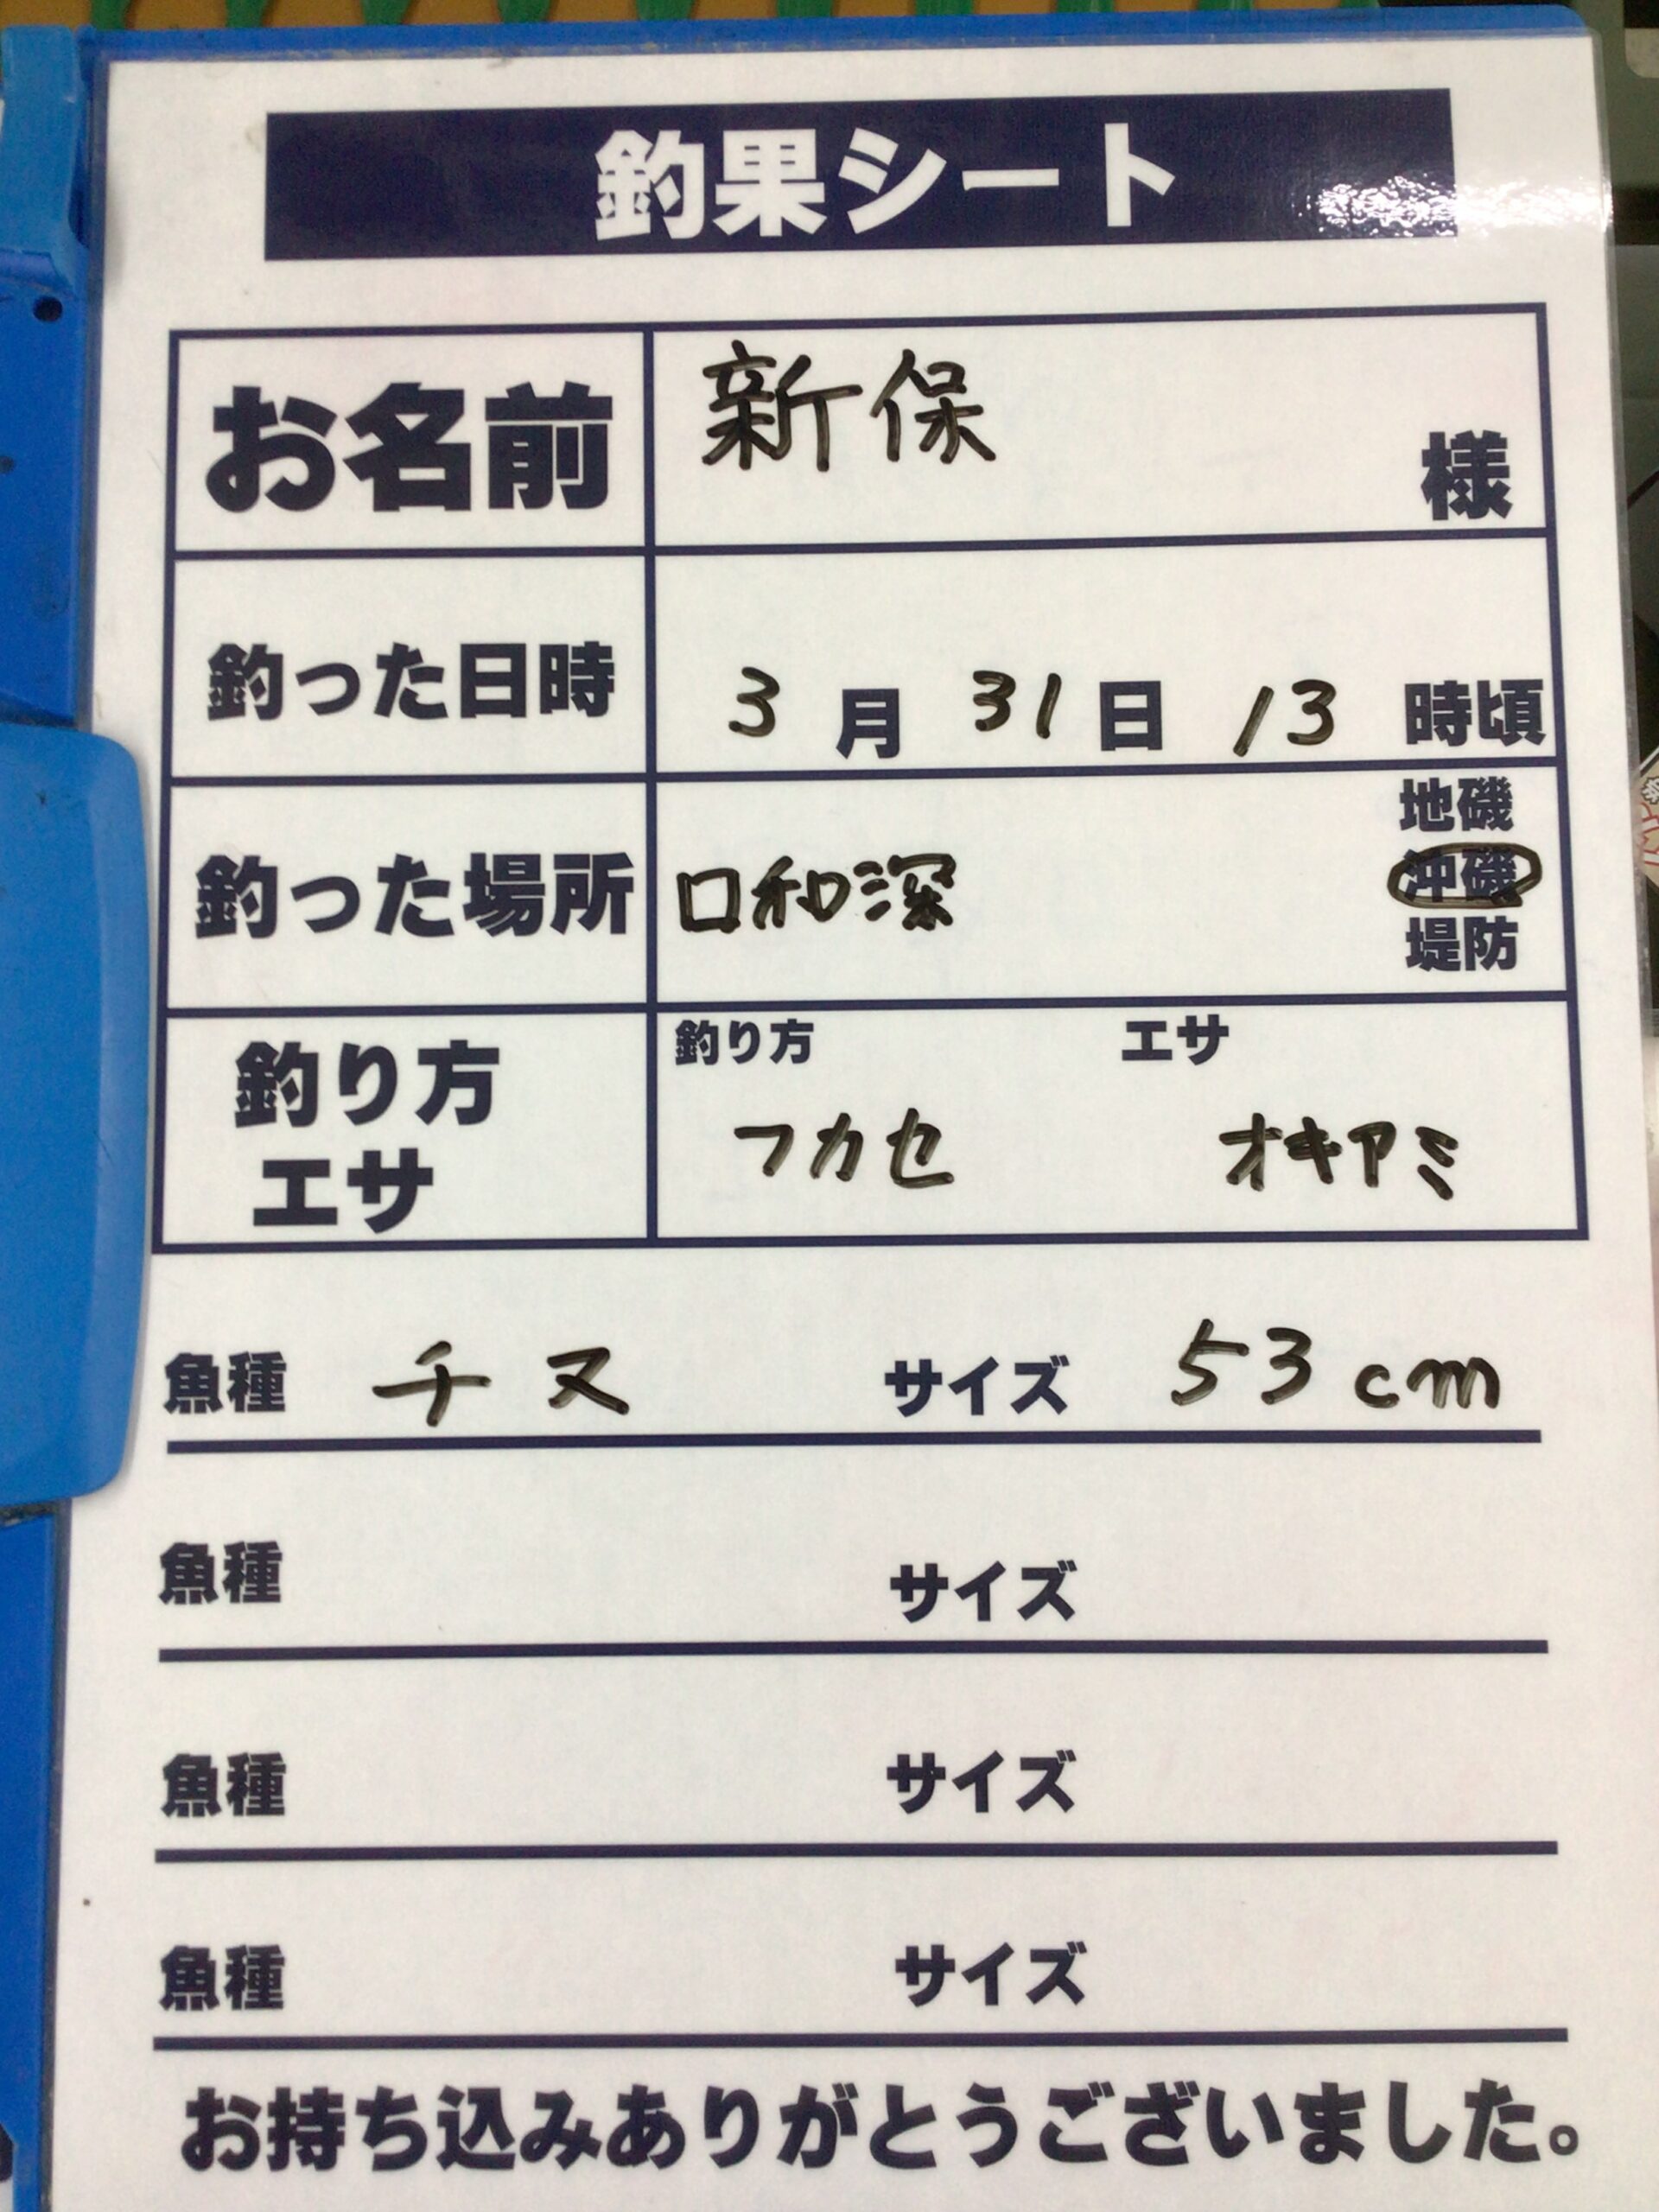 釣果シート
お名前 新保 様
釣った日時 3月31日13時頃
釣った場所 口和深 地磯 沖磯 堤防
釣り方 エサ
釣り方 エサ
フカセ オキアミ
魚種 チヌ サイズ 53cm
魚種 サイズ
魚種 サイズ
魚種 サイズ
お持ち込みありがとうございました。